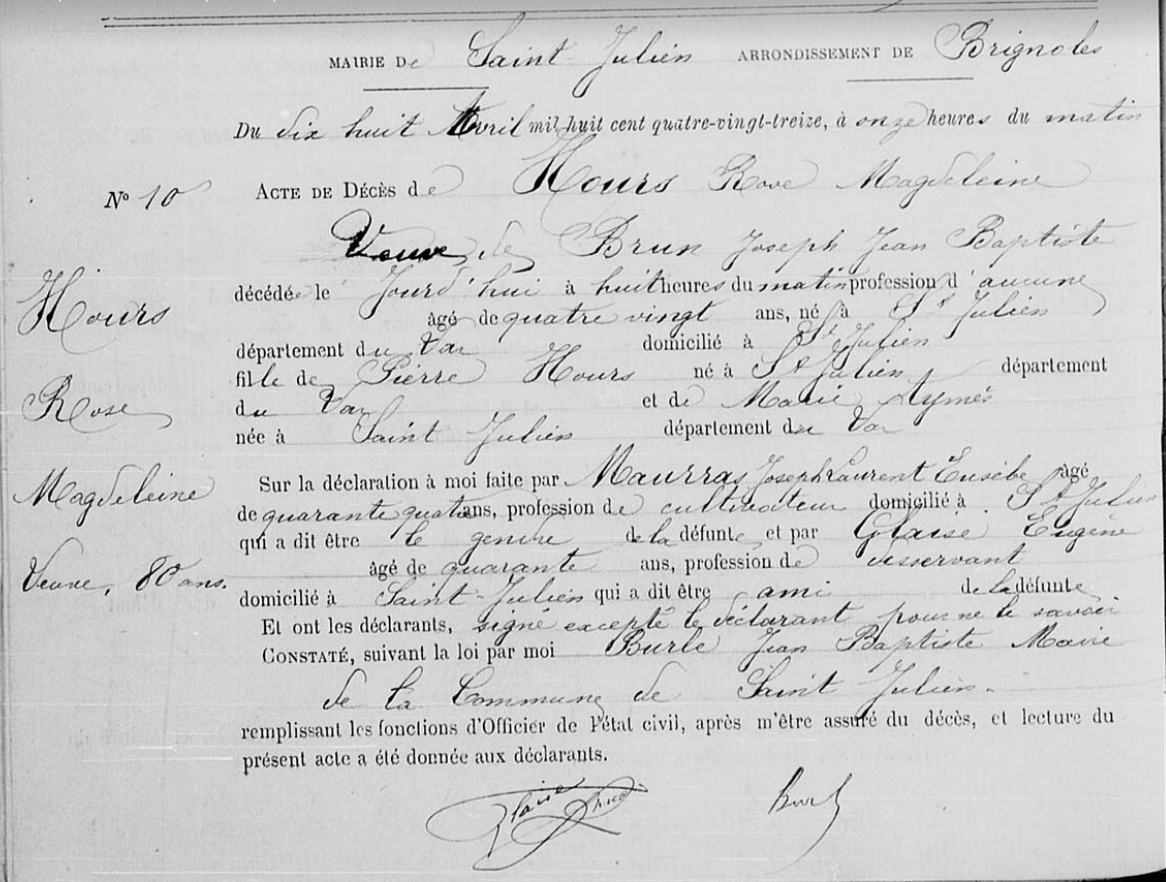 MAIRIE De Saint Julien ARRONDISSEMENT DE Brignoles
Du dix huit Avril mil huit cent quatre-vingt-treize, à onze heures du matin
N° 10
ACTE DE DÉCÈS de Hours Rose Magdeleine
Veuve de Brun Joseph Jean Baptiste
décédée le Jourd'hui à huit heures du matin profession d'aucune
âgé de quatre vingt ans, né à St Julien
département du Var domicilié à St Julien
fille de Pierre Hours né à St Julien département
du Var et de Marie Aymés
née à Saint Julien département du Var
Hours
Rose
Magdeleine
Veuve, 80 ans.
Sur la déclaration à moi faite par Maurras Joseph Laurent Eusèbe âgé
de quarante quatre ans, profession de cultivateur domicilié à St Julien
qui a dit être le gendre de la défunte, et par Glaise Eugène
âgé de quarante ans, profession de desservant
domicilié à Saint-Julien qui a dit être ami de la défunte
Et ont les déclarants, signé excepté le déclarant pour ne le savoir
CONSTATÉ, suivant la loi par moi Burle Jean Baptiste Maire
de la Commune de Saint Julien.
remplissant les fonctions d'Officier de l'état civil, après m'être assuré du décès, et lecture du
présent acte a été donnée aux déclarants.
Glaise Burle